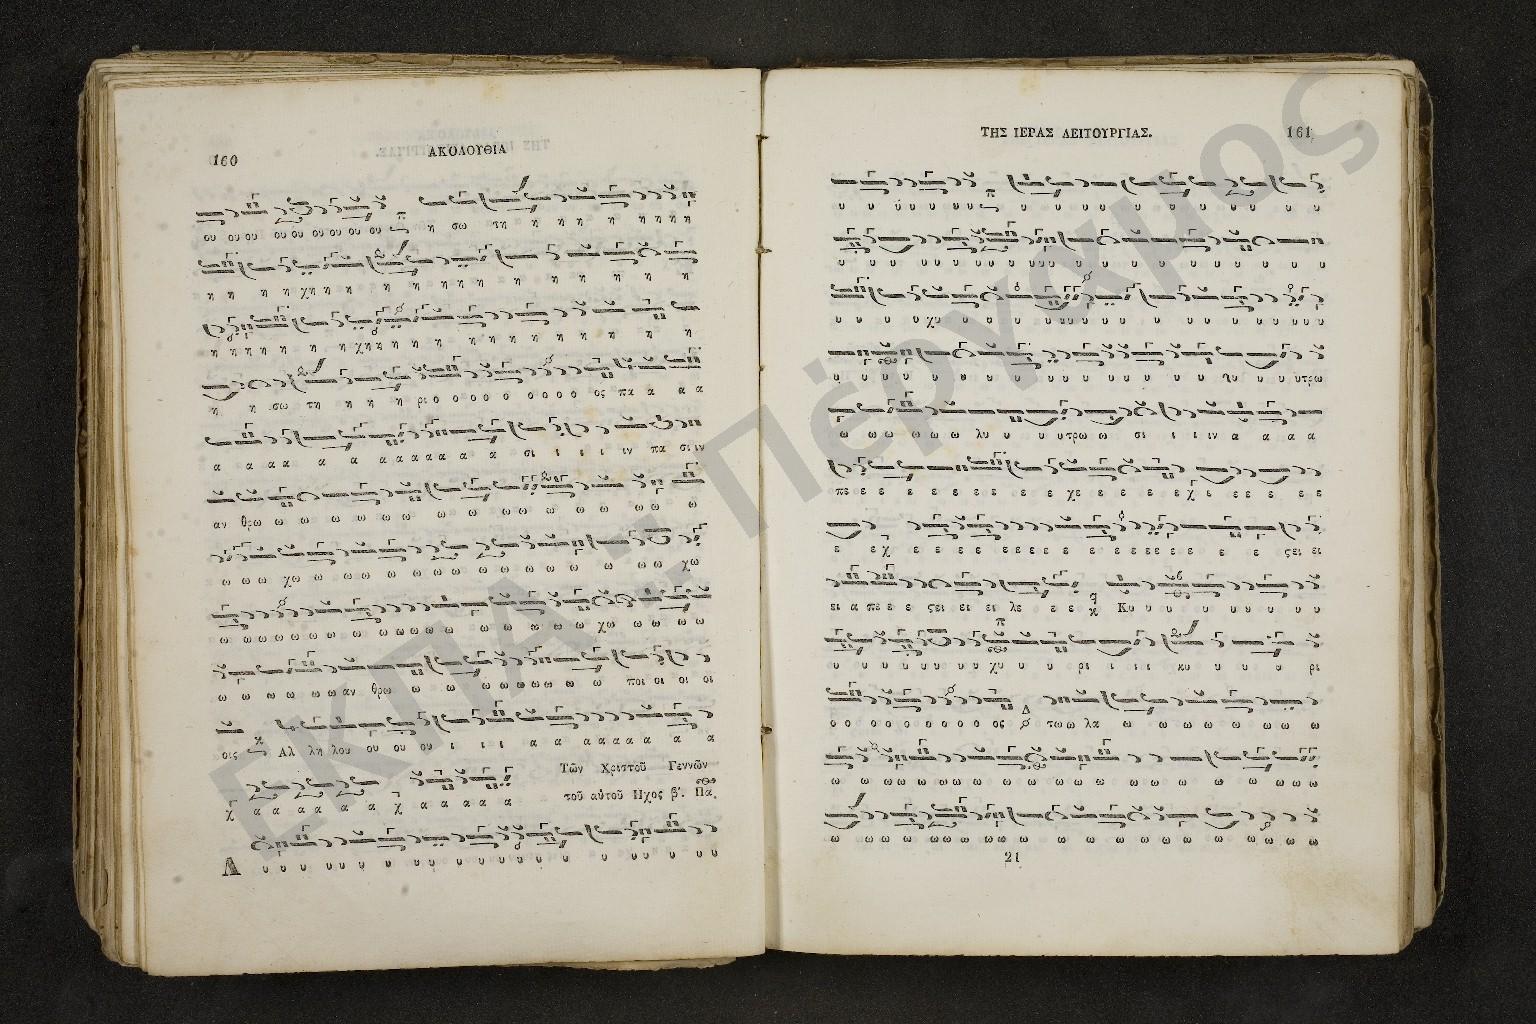 160
ΑΚΟΛΟΥΘΙΑ
ου ου ου ου ου ου ου ου ου η σω τη η η η η η η η η
η η η χη η η η η η η η η η η η η η η
η η η η η η η χη η η η η η η η η η η
η η σω τη η η η ρι ο ο ο ο ο ο ο ο ο ος πα α α α
α α α α α α α α α α α α α α σι ι ι ι ι ιν πα σι ιν
αν θρω ω ω ω ω ω ω ω ω ω ω ω ω ω ω
ω ω ω χω ω ω ω ω ω ω ω ω ω ω ω ω ω ω ω χω
ω ω ω ω ω ω ω ω ω ω ω ω ω ω ω ω ω χω ω ω ω ω
ω ω ω ω ω ω αν θρω ω ω ω ω ω ω ω ω ω ποι οι οι οι
οις Αλ λη λου ου ου ου ι ι ι α α α α α α α α α
χ α α α α α α χ α α α α α
Τῶν Χριστοῦ Γεννῶν
τοῦ αὐτοῦ Ηχος β'. Πα
Λ υ υ υ υ υ υ υ υ υ υ υ υ υ υ υ υ υ υ υ υ υ υ
ΤΗΣ ΙΕΡΑΣ ΛΕΙΤΟΥΡΓΙΑΣ.
161
υ υ υ υ υ υ υ υ υ υ υ υ υ υ υ υ υ
υ υ υ υ υ υ υ υ υ υ υ υ υ υ υ υ υ υ υ υ υ
υ υ υ υ χυ υ υ υ υ υ υ υ υ υ υ υ υ υ υ υ υ υ
υ υ υ υ υ υ υ υ υ υ υ υ υ υ υ υ λυ υ υ υτρω
ω ω ω ω ω ω λυ υ υ υτρω ω σι ι ι ιν α α α α
πε ε ε ε ε ε ε ε ε χε ε ε ε ε χ ε εε ε ε ε
ε εχ ε ε ε ε εεεε ε ε ε εεεεε ε ε ε ςει ει
ει α πε ε ε ςει ει ει λε ε ε Κυ υ υ υ υ υ υ υ υ
υ υ υ υ υ υ υ υ χυ υ υ ρι ι ι ι κυ υ υ υ ρι
ο ο ο ο ο ο ο ο ο ο ος τω ω λα ω ω ω ω ω ω ω
ω ω ω ω ω ω ω ω ω ω ω ω ω ω ω ω ω ω ω ω
ω ω ω ω ω ω ω ω ω ω ω ω ω ω ω ω ω ω ω ω
21
ΕΚΠΑ :: Πέργαμος